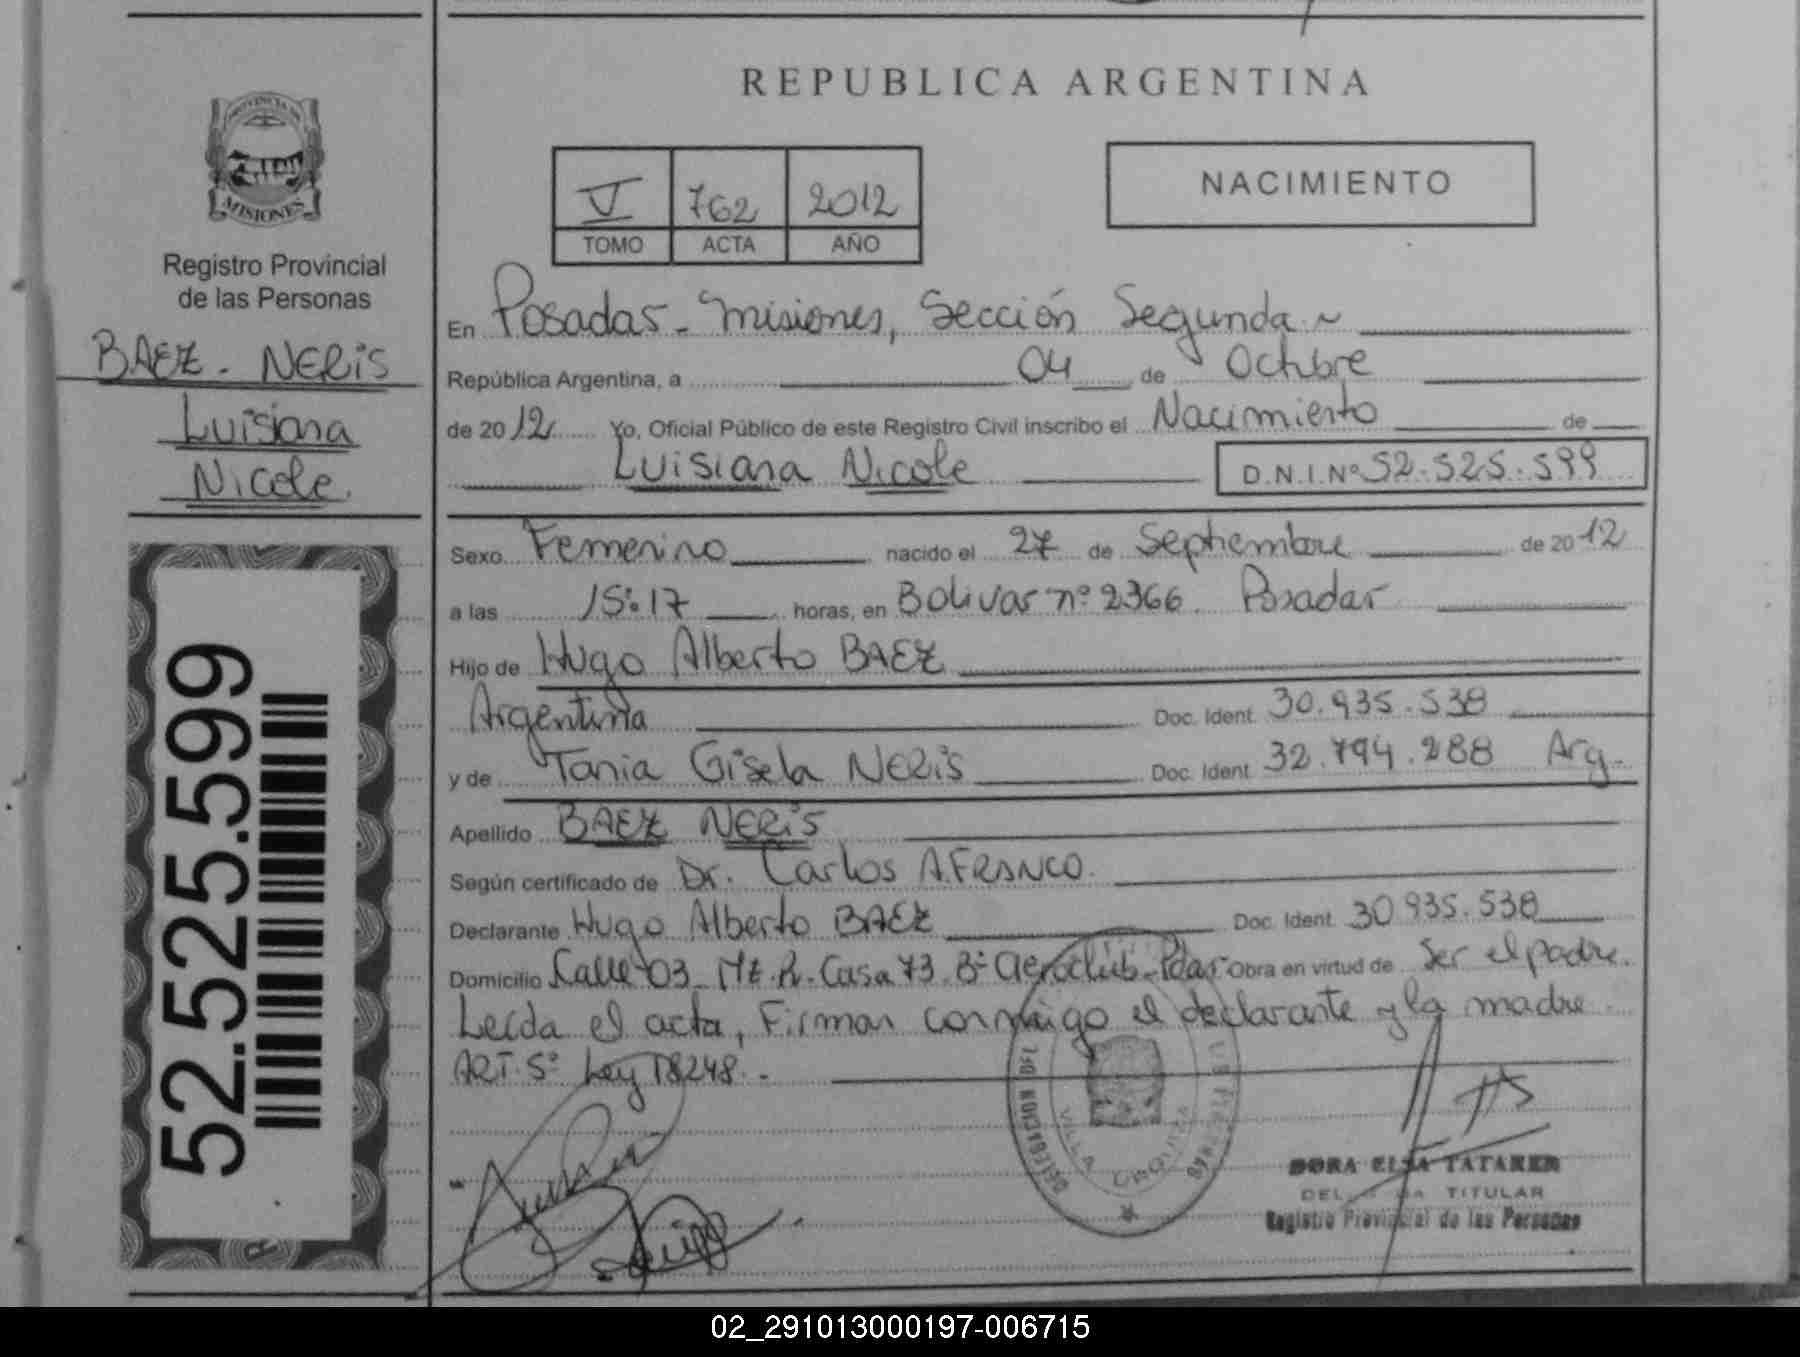 REPUBLICA ARGENTINA
PROVINCIA DE
MISIONES
Registro Provincial
de las Personas
BAEZ - NERIS
Luisiana
Nicole.
52.525.599
V 762 2012
TOMO ACTA AÑO
NACIMIENTO
En Posadas - Misiones, Sección Segunda ~
República Argentina, a 04 de Octubre
de 2012 Yo, Oficial Público de este Registro Civil inscribo el Nacimiento de
Luisiana Nicole D.N.I.Nº 52.525.599
Sexo Femenino nacido el 27 de Septiembre de 2012
a las 15:17 horas, en Bolivar nº 2366 Posadas
Hijo de Hugo Alberto BAEZ
Argentina Doc. Ident 30.935.538
y de Tania Gisela NERIS Doc. Ident 32.794.288 Arg.
Apellido BAEZ NERIS
Según certificado de Dr. Carlos A. FRANCO.
Declarante Hugo Alberto BAEZ Doc. Ident. 30.935.538
Domicilio Calle 03 Mz. Casa 73 Bº Aeroclub - Pdas Obra en virtud de Ser el padre.
Leída el acta, Firman conmigo el declarante y la madre.
ART. 5º Ley 18248. -
DELEGACION DEL
VILLA URQUIZA
DORA ELSA TATAREN
TITULAR
Registro Provincial de las Personas
02_291013000197-006715